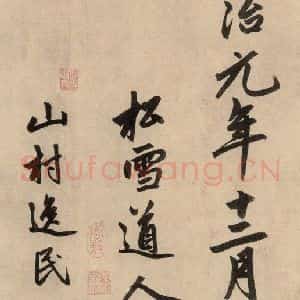 治元年十二月
松雪道人
山村逸民
ShufaWang.CN